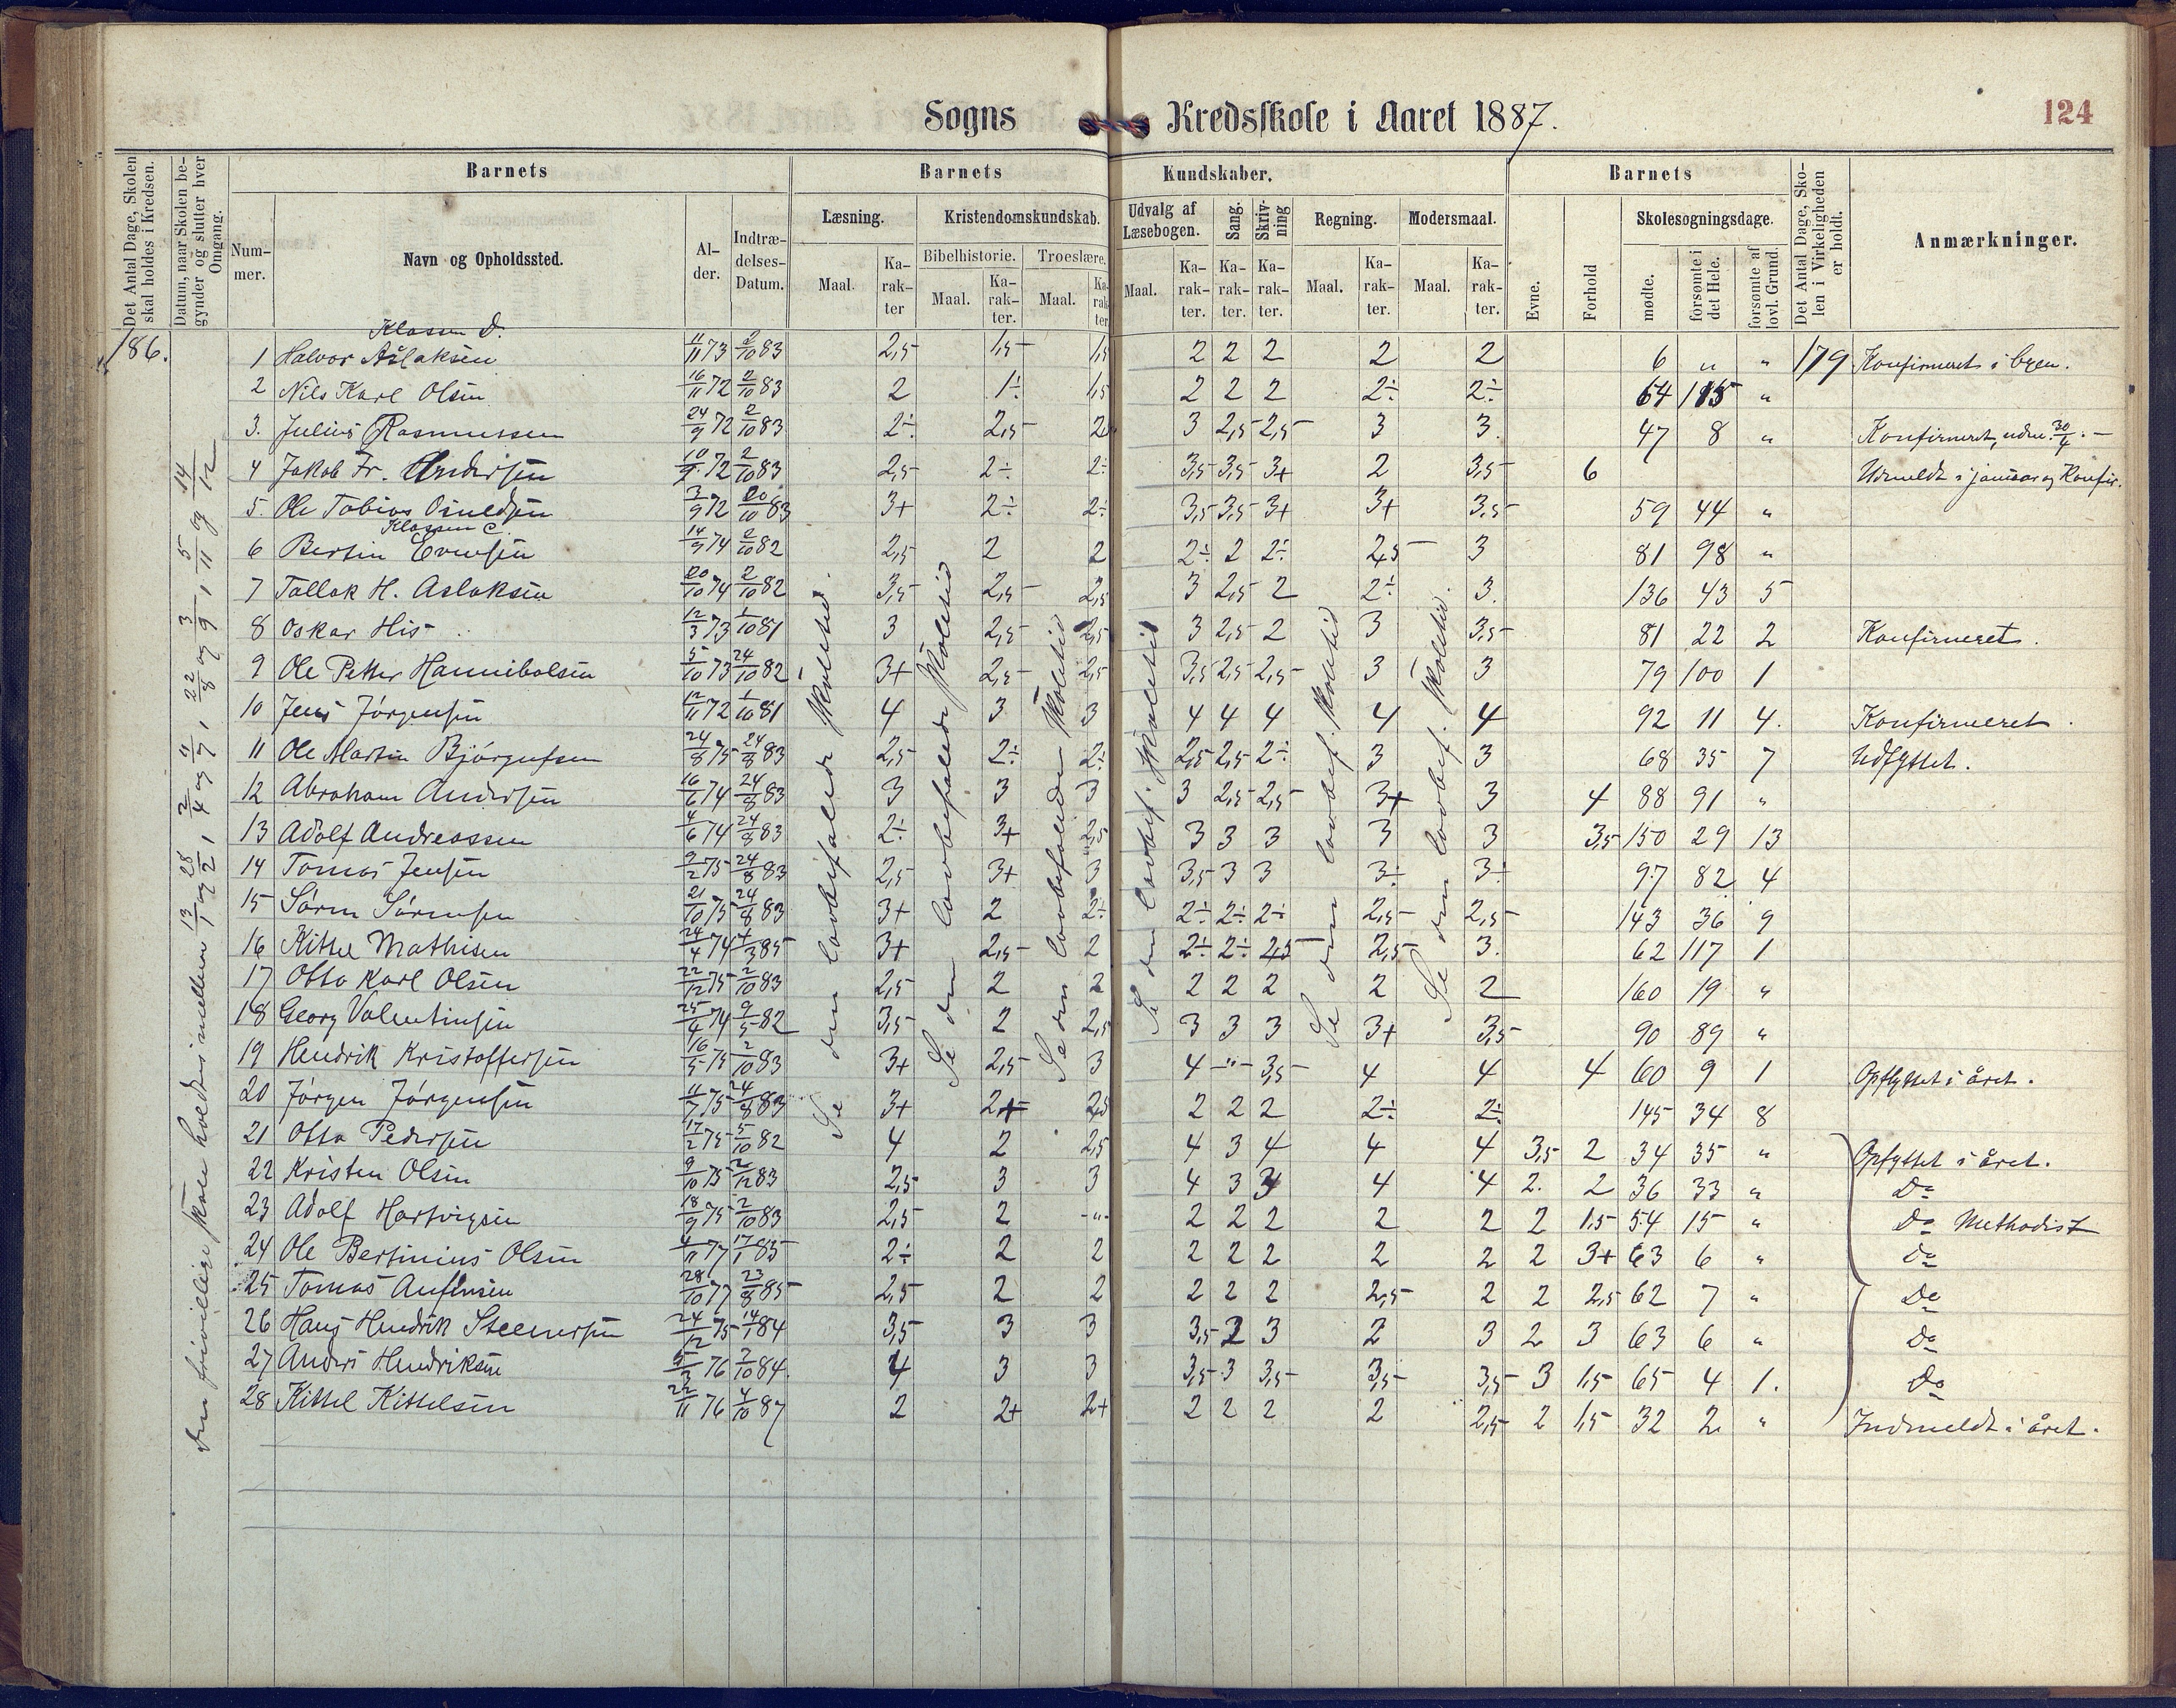 Sogns Kredsskole i Aaret 1887.
124
Det Antal Dage, Skolen skal holdes i Kredsen.
Datum, naar Skolen begynder og slutter hver Omgang.
Barnets
Nummer.
Navn og Opholdssted.
Alder.
Indtrædelses-Datum.
Barnets Kundskaber.
Læsning.
Maal.
Karakter
Kristendomskundskab.
Bibelhistorie.
Maal.
Karakter.
Troeslære.
Maal.
Karakter
Udvalg af Læsebogen.
Maal.
Karakter.
Sang.
Karakter.
Skrivning
Karakter.
Regning.
Maal.
Karakter.
Modersmaal.
Maal.
Karakter.
Barnets
Evne.
Forhold
Skolesøgningsdage.
mødte.
forsømte i det Hele.
forsømte af lovl. Grund.
Det Antal Dage, Skolen i Virkeligheden er holdt.
Anmærkninger.
186.
Den frivillige skole holdtes imellem 13/1 og 28/2, 2/4 og 4/7, 22/8 og 3/9, 5/11 og 14/12
Se den lovbefalede skoletid
Se den lovbefalede skoletid
Se den lovbefalede skoletid
Se den lovbef. skoletid
Se den lovbef. skoletid
Se den lovbef. skoletid.
Klassen D.
1 Halvor Aslaksen 11/11 73 2/10 83 2,5 1,5 1,5 2 2 2 2 2 6 " " 179 Konfirmeret i byen.
2 Nils Karl Olsen 16/11 72 2/10 83 2 1÷ 1,5 2 2 2 2÷ 2÷ 64 115 "
3. Julius Rasmussen 24/9 72 2/10 83 2÷ 2,5 2 3 2,5 2,5 3 3. 47 8 " Konfirmeret, udm. 30/4.
4 Jakob Fr. Andersen 10/9 72 2/10 83 2,5 2÷ 2÷ 3,5 3,5 3+ 2 3,5 6 Udmeldt i januar og Konfir.
5. Ole Tobias 3/9 72 20/10 83 3+ 2÷ 2÷ 3,5 3,5 3+ 3+ 3,5 59 44 "
Klassen C.
6 Bertin Evensen 14/9 74 2/10 82 2,5 2 2 2÷ 2 2÷ 2,5 3 81 98 "
7 Tallak H. Aslaksen 20/10 74 2/10 82 3,5 2,5 2,5 3 2,5 2 2÷ 3. 136 43 5
8 Oskar His 12/3 73 1/10 81 3 2,5 2,5 3 2,5 2 3 3,5 81 22 2 Konfirmeret.
9 Ole Petter Hannibalsen 5/10 73 24/10 82 3+ 2,5 2,5 3,5 2,5 2,5 3 3 79 100 1
10 Jens Jørgensen 12/11 72 1/10 81 4 3 3 4 4 4 4 4 92 11 4. Konfirmeret.
11 Ole Martin Bjørgufsen 24/8 75 24/8 83 2,5 2÷ 2÷ 2,5 2,5 2÷ 3 3 68 35 7 Udflyttet.
12 Abraham Andersen 16/6 74 24/8 83 3 3 3 3 2,5 2,5 3+ 3 4 88 91 "
13 Adolf Andreassen 4/6 74 24/8 83 2÷ 3+ 2,5 3 3 3 3 3 3,5 150 29 13
14 Tomas Jensen 9/2 75 24/8 83 2,5 3+ 3 3,5 3 3 3÷ 3÷ 97 82 4
15 Søren Sørensen 21/10 75 24/8 83 3+ 2 2÷ 2÷ 2÷ 2÷ 2,5 2,5 143 36 9
16 Kittel Mathisen 24/4 74 4/3 85 3+ 2,5 2 2÷ 2÷ 2,5 2,5 3. 62 117 1
17 Otto Karl Olsen 22/12 75 2/10 83 2,5 2 2 2 2 2 2 2 160 19 "
18 Georg Valentinsen 25/4 74 9/5 82 3,5 2 2,5 3 3 3 3+ 3,5 90 89 "
19 Hendrik Kristoffersen 16/5 75 2/10 83 3+ 2,5 3 4 " 3,5 4 4 4 60 9 1 Opflyttet i året.
20 Jørgen Jørgensen 11/7 75 24/8 83 3+ 2+ 2,5 2 2 2 2÷ 2÷ 145 34 8
21 Otto Pedersen 17/2 75 5/10 82 4 2 2,5 4 3 4 4 4 3,5 2 34 35 " Opflyttet i året.
22 Kristen Olsen 9/10 75 2/12 83 2,5 3 3 4 3 3 4 4 2. 2 36 33 " Do
23 Adolf Hartvigsen 18/9 75 2/10 83 2,5 2 " 2 2 2 2 2 2 1,5 54 15 " Do Methodist
24 Ole Bertinius Olsen 4/11 77 17/1 85 2÷ 2 2 2 2 2 2 2 2 3+ 63 6 " Do
25 Tomas Aufinsen 28/10 77 23/8 85 2,5 2 2 2 2 2 2,5 2 2 2,5 62 7 " Do
26 Hans Hendrik Steenersen 24/12 75 14/1 84 3,5 3 3 3,5 2 3 2 3 2 3 63 6 " Do
27 Anders Hendriksen 5/3 76 2/10 84. 4 3 3 3,5 3 3,5 3,5 3,5 3 1,5 65 4 1. Do
28 Kittel Kittelsen 22/11 76 4/10 87 2 2+ 2+ 2 2 2 2 2,5 2 1,5 32 2 " Indmeldt i året.